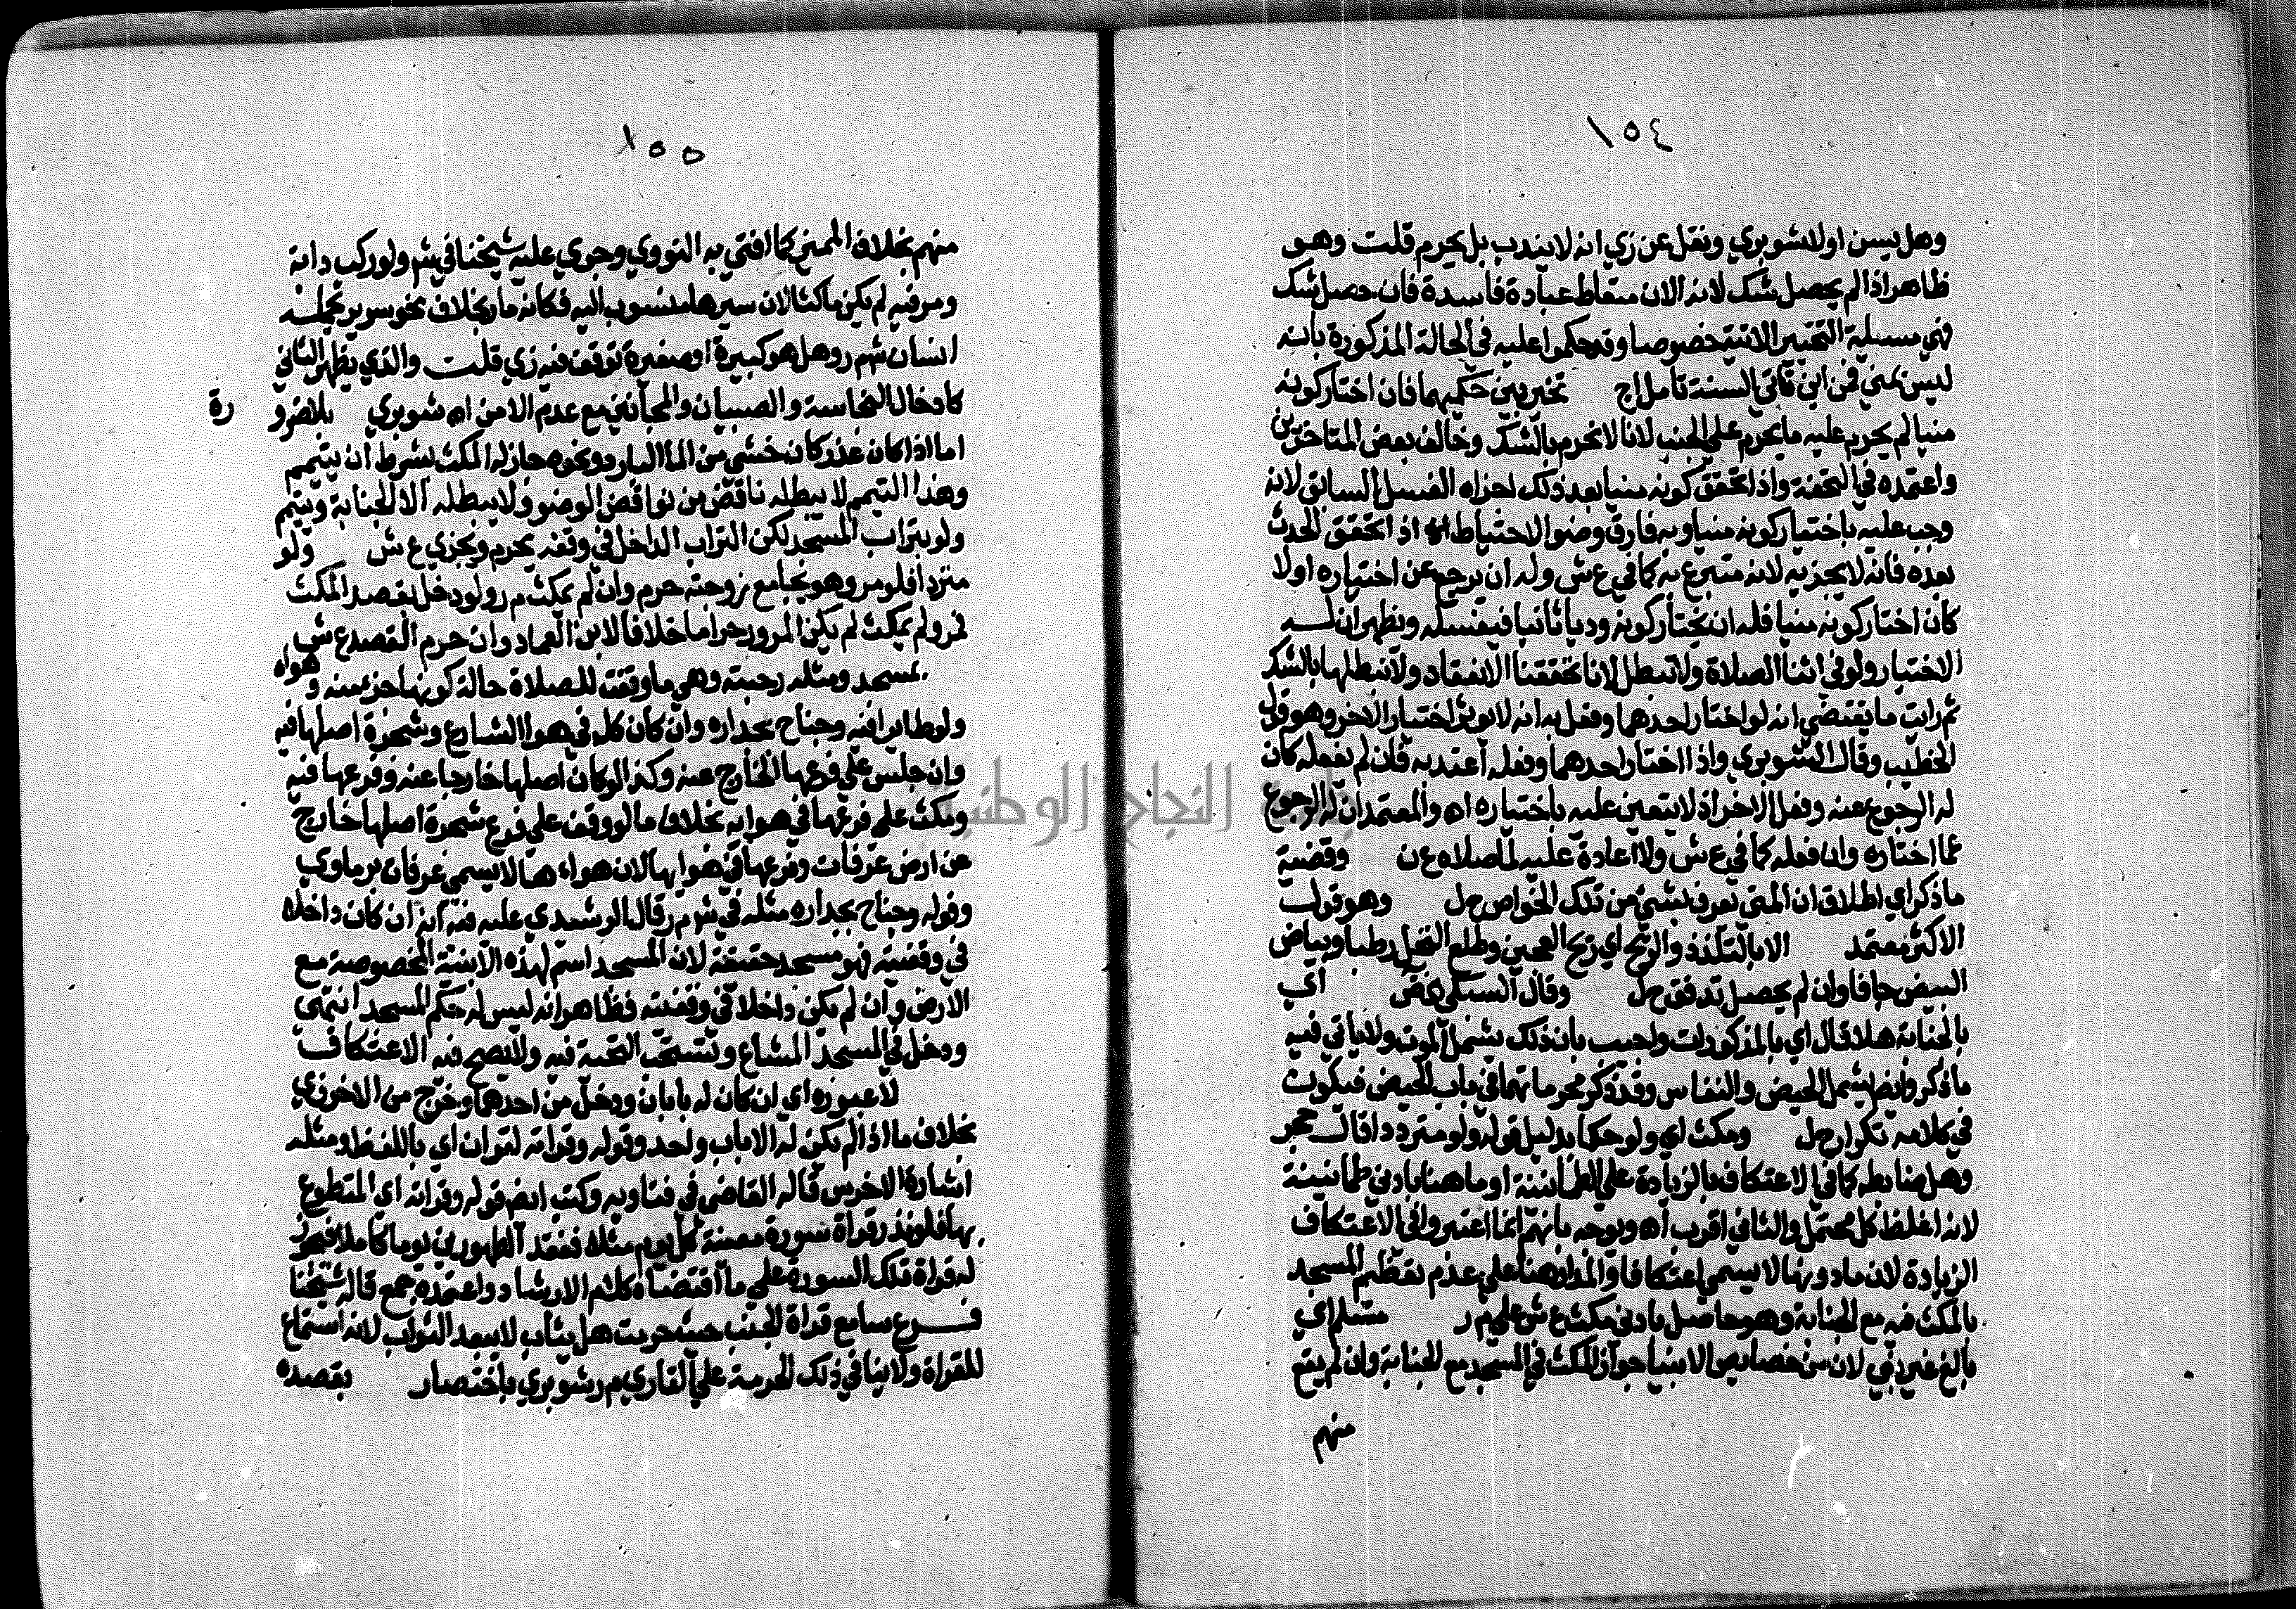 ١٥٤
وهل يسن اولا شوبري ونقل عن زي انه لا يندب بل يحرم قلت وهو
ظاهر اذا لم يحصل شك لانه الان متعاط عبادة فاسدة فان حصل شك
فهي مسئلة التخيير الاتية خصوصا وقد حكموا عليه في الحالة المذكورة بانه
ليس بمني فمن اين تاتي السنة تامل اج تخير بين حكميهما فان اختار كونه
منيا لم يحرم عليه ما يحرم علي الجنب لانا لا نحرم بالشك وخالف بعض المتاخرين
واعتمده في التحفة واذا تحقق كونه منيا بعد ذلك اجزاه الغسل السابق لانه
وجب عليه باختيار كونه منيا وبه فارق وضو الاحتياط اذا تحقق الحدث
بعده فانه لا يجزيه لانه متبرع به كما في ع ش وله ان يرجع عن اختياره اولا
كان اختار كونه منيا فله ان يختار كونه وديا ثانيا فيغسله ويظهر ان له
الاختيار ولو في اثنا الصلاة ولا تبطل لانا تحققنا الانعقاد ولا نبطلها بالشك
ثم رايت ما يقتضي انه لو اختار احدهما وفعل به انه لا يوثر اختيار الاخر وهو قول
الخطيب وقال الشوبري واذا اختار احدهما وفعله اعتد به فان لم يفعله كان
له الرجوع عنه وفعل الاخر اذ لا يتعين عليه باختياره اه والمعتمد ان له الرجوع
عما اختاره وان فعله كما في ع ش ولا اعادة عليه لما صلاه ع ن وقضية
ما ذكر اي اطلاق ان المني يعرف بشي من تلك الخواص ح ل وهو قول
الاكثر معتمد الا بالتلذذ والريح اي ريح العجين وطلع النخل رطبا وبياض
البيض جافا وان لم يحصل تدفق ح ل وقال السبكي اي
بالجنابة هلا قال اي بالمذكورات واجيب بان ذلك يشمل الموت ولا ياتي فيه
ما ذكر وايضا يشمل الحيض والنفاس وقد ذكر محرماتهما في باب الحيض فيكون
في كلامه تكرار ح ل ومكث اي ولو حكما بدليل قوله ولو مترددا قال حجر
وهل ضابطه كما في الاعتكاف بالزيادة علي الطمانينة او ما هنا بادني طمانينة
لانه اغلظ كل محتمل والثاني اقرب اه ويوجه بانهم انما اعتبروا في الاعتكاف
الزيادة لان ما دونها لا يسمي اعتكافا والمدار هنا علي عدم تعظيم المسجد
بالمكث فيه مع الجنابة وهو حاصل بادني مكث ع ش علي م ر مسلم اي
بالغ غير نبي لان من خصايص الانبيا جواز المكث في المسجد مع الجنابة وان لم يقع
منهم
١٥٥
منهم بخلاف المميز كما افتي به النووي وجري عليه شيخنا في شرحه ولو ركب دابة
ومر فيه لم يكن ماكثا لان سيرها منسوب اليه فكانه مار بخلاف نحو سرير يحمله
انسان شرح م ر وهل هو كبيرة او صغيرة توقف فيه زي قلت والذي يظهر الثاني
كادخال النجاسة والصبيان والمجانين مع عدم الامن اه شوبري بلا ضرورة
اما اذا كان عذر كان خشي من الما البارد ونحوه جاز له المكث بشرط ان يتيمم
وهذا التيمم لا يبطله ناقض من نواقض الوضو ولا يبطله الا الجنابة ويتيمم
ولو بتراب المسجد لكن التراب الداخل في وقفه يحرم ويجزي ع ش ولو
مترددا فلو مر وهو يجامع زوجته حرم وان لم يمكث م ر ولو دخل بقصد المكث
فمر ولم يمكث لم يكن المرور حراما خلافا لابن العماد وان حرم القصد ع ش
بمسجد ومثله رحبته وهي ما وقفت للصلاة حالة كونها جزء منه وهواه
ولو طاير فيه وجناح بجداره وان كان كل في هوا الشارع وشجرة اصلها فيه
وان جلس علي فرعها الخارج عنه وكذا لو كان اصلها خارجا عنه وفرعها فيه
ومكث علي فرعها في هوايه بخلاف ما لو وقف علي فرع شجرة اصلها خارج
عن ارض عرفات وفرعها في هوايها لان هواءها لا يسمي عرفات برماوي
وقوله وجناح بجداره مثله في ش م ر قال الرشيدي عليه فيه انه ان كان داخلا
في وقفيته فهو مسجد حقيقة لان المسجد اسم لهذه الابنية المخصوصة مع
الارض وان لم يكن داخلا في وقفيته فظاهر انه ليس له حكم المسجد انتهي
ودخل في المسجد المشاع وتستحب التحية فيه ولا يصح فيه الاعتكاف
لا عبوره اي ان كان له بابان ودخل من احدهما وخرج من الاخر زي
بخلاف ما اذا لم يكن له الا باب واحد وقوله وقراته لقران اي باللفظ ومثله
اشارة الاخرس قاله القاضي في فتاويه وكتب ايض قوله وقراته اي المتطوع
بها فلو نذر قراة سورة معينة كل يوم مثلا ففقد الطهورين يوما كاملا فيجوز
له قراة تلك السورة علي ما اقتضاه كلام الارشاد واعتمده جمع قاله شيخنا
فرع سامع قراة الجنب حيث حرمت هل يثاب لا يبعد الثواب لانه استماع
للقراة ولا ينافي ذلك الحرمة علي القاري م ر شوبري باختصار بقصده
جامعة النجاح الوطنية